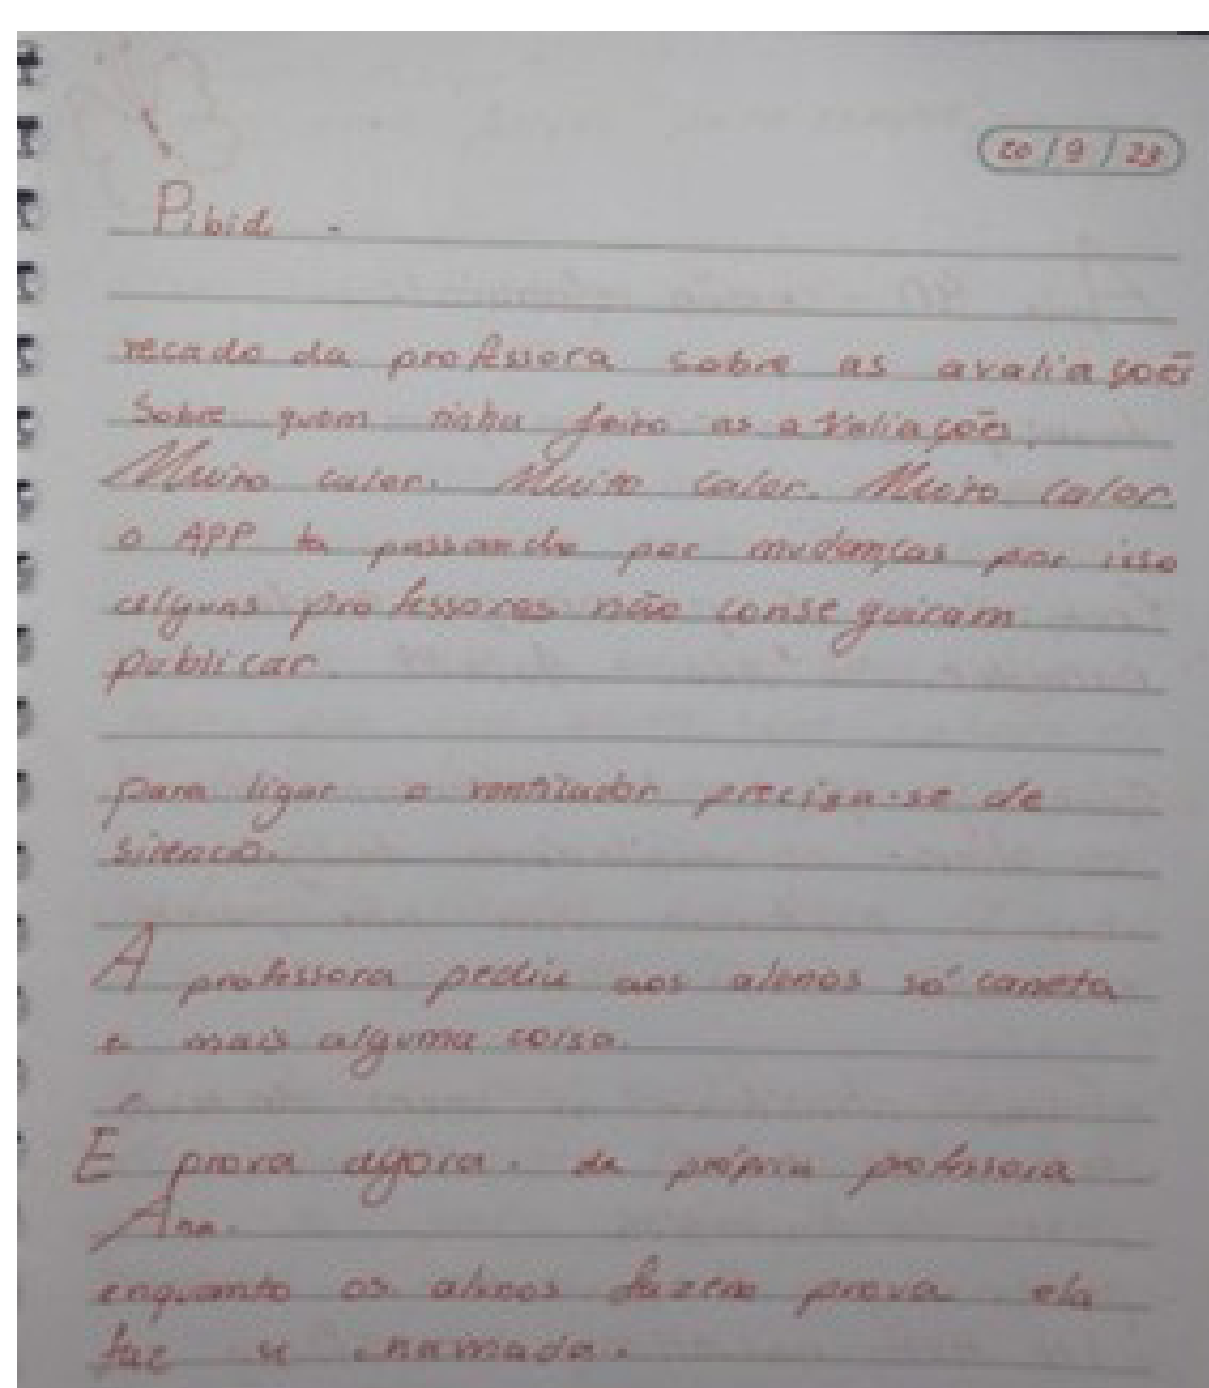 20/9/23
Pibid.
recado da professora sobre as avaliações
Sobre quem tinha feito as avaliações.
Muito calor. Muito calor. Muito calor
o APP ta passando por mudanças por isso
alguns professores não conseguiram
publicar.
para ligar o ventilador precisa-se de
silencio.
A professora pediu aos alunos só caneta
e mais alguma coisa.
E prova agora. da própria professora
Ana.
enquanto os alunos fazem prova ela
faz a chamada.